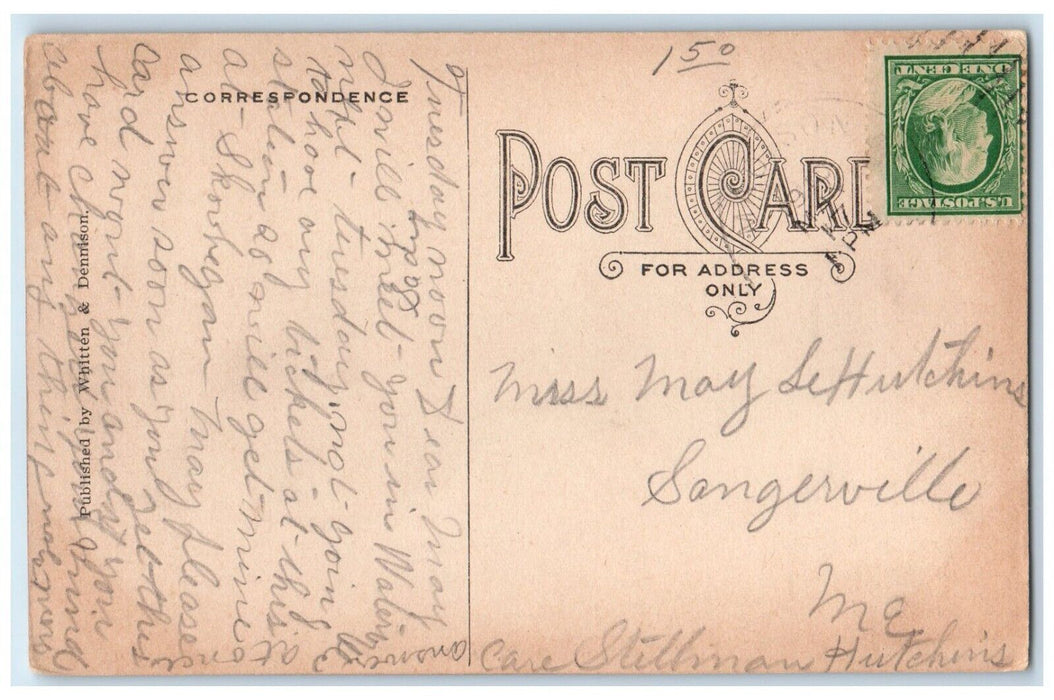 1 50
CORRESPONDENCE
POST CARD
FOR ADDRESS
ONLY
ONE CENT
U.S. POSTAGE
PM
Miss May S Hutchins
Sangerville
Me
Care Stillman Hutchins
Tuesday noon Dear May
I will meet you in
next tuesday not going
to have any tickets at this
station so will get mine
at Skowhegan May please
answer soon as you get this
card wont you and if you
have changed your mind
about any thing
answer
at once
Published by Whitten & Dennison.